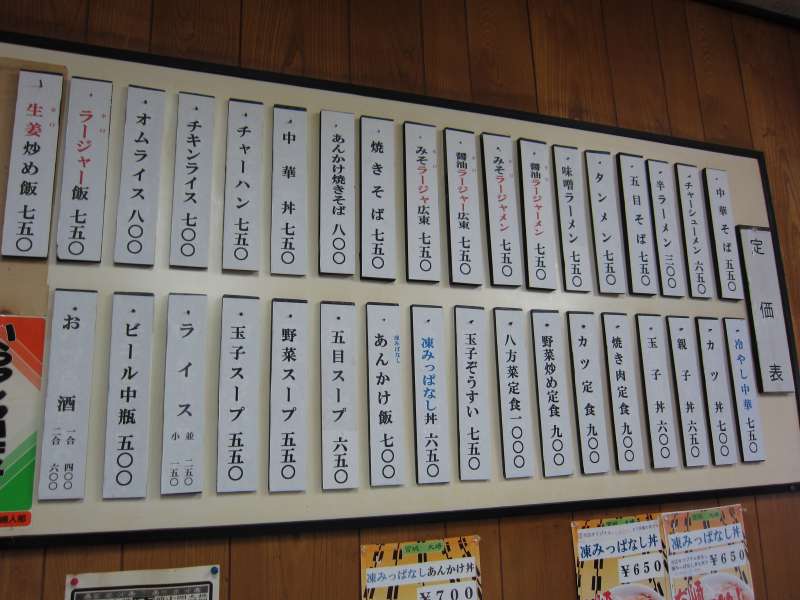 定価表
中華そば 五五〇
チャーシューメン 六五〇
半ラーメン 三〇〇
五目そば 七五〇
タンメン 七五〇
味噌ラーメン 七五〇
醤油ラージャーメン 七五〇
みそラージャメン 七五〇
醤油ラージャ広東 七五〇
みそラージャ広東 七五〇
焼きそば 七五〇
あんかけ焼きそば 八〇〇
中華丼 七五〇
チャーハン 七五〇
チキンライス 七〇〇
オムライス 八〇〇
ラージャー飯 七五〇
生姜炒め飯 七五〇
冷やし中華 七五〇
カツ丼 七〇〇
親子丼 六五〇
玉子丼 六〇〇
焼き肉定食 九〇〇
カツ定食 九〇〇
野菜炒め定食 九〇〇
八方菜定食 一〇〇〇
玉子ぞうすい 七五〇
凍みっぱなし丼 六五〇
凍みっぱなし
あんかけ飯 七〇〇
五目スープ 六五〇
野菜スープ 五五〇
玉子スープ 五五〇
ライス 並 二五〇
小 一五〇
ビール中瓶 五〇〇
お酒 一合 四〇〇
二合 六〇〇
凍みっぱなしあんかけ丼
¥700
凍みっぱなし丼
¥650
凍みっぱなし丼
¥650